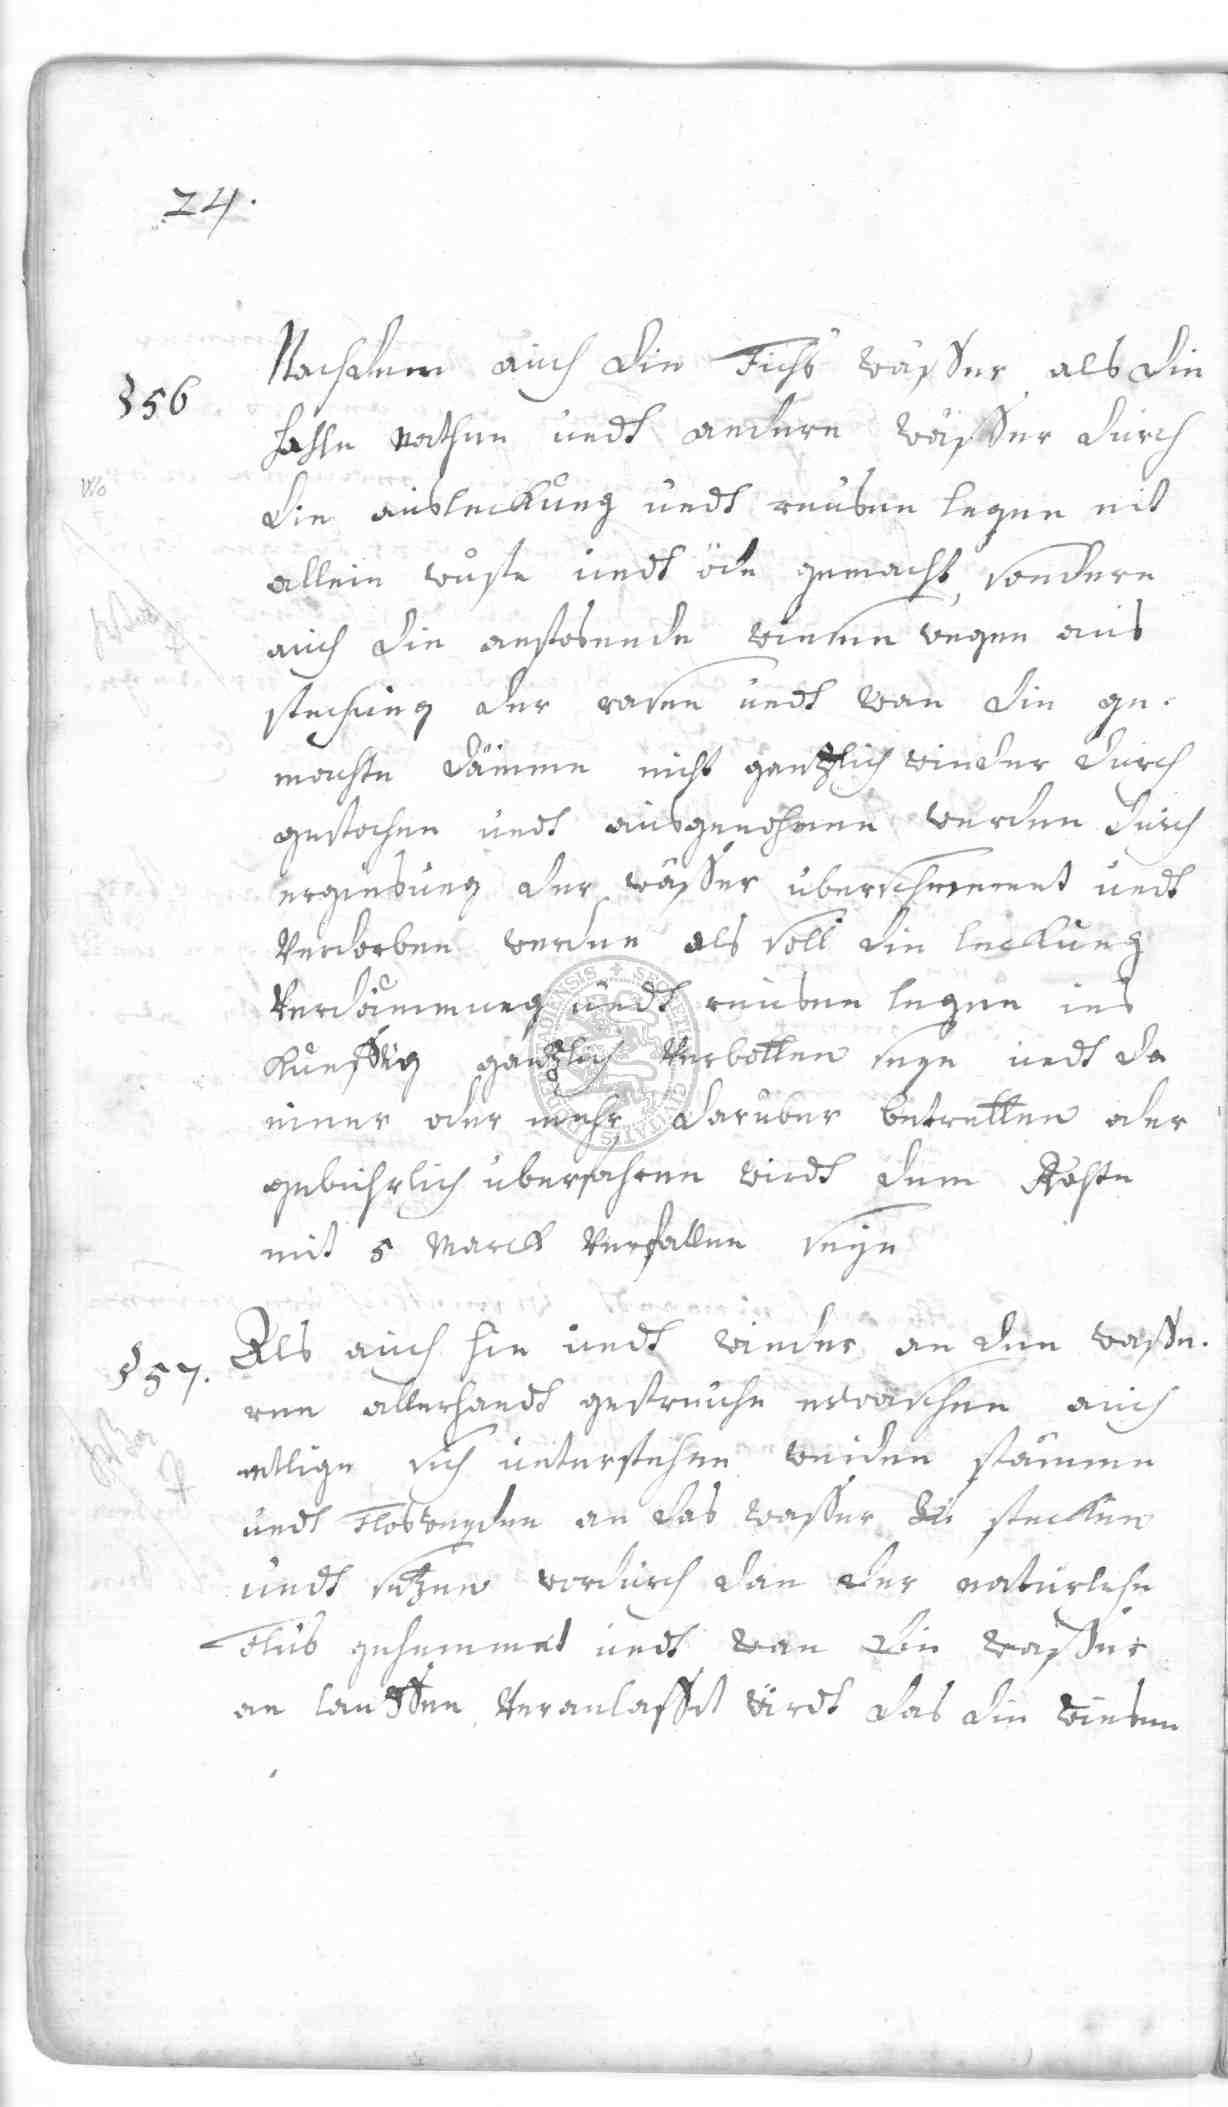 24.
§56
Nachdem auch die Fisch wässer als die
hahle rathen undt andere wässer durch
die ausleckung undt reusen legen nit
allein wüste undt öde gemacht, sondern
auch die anstosende wiesen wegen aus
stechung der rasen undt wan die ge-
machte dämme nicht gantzlich wieder durch
gestochen undt ausgenohmen werden durch
ergiesung der wässer überschwemmet undt
Verdorben werden als soll die leckung
Verdämmung undt reusen legen ins
Kunfftig gantzlich Verbotten seyn undt da
einer oder mehr, darüber betretten oder
gebührlich überfahren wirdt dem
mit 5 Marck Verfallen seyn
§57.
Als auch hin undt wieder an den wasse-
ren allerhandt gestreuche erwachsen auch
etlige sich unterstehen weiden stämme
undt Flosweyden an das wasser zu stecken
undt setzen wordurch dan der naturlche
Flus gehemmet undt wan die wasser
an lauffen Veranlasset wirdt das die wiesen